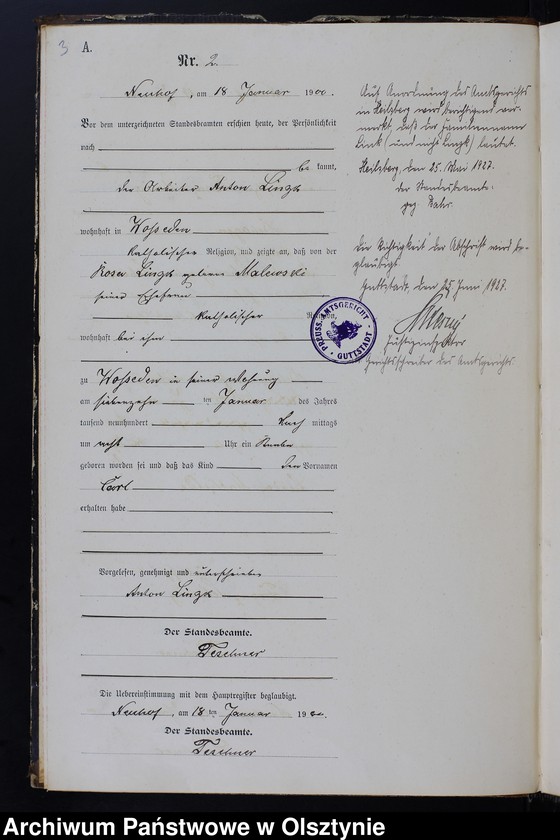 3 A.
Nr. 2.
Neuhof, am 18 Januar 1900.
Vor dem unterzeichneten Standesbeamten erschien heute, der Persönlichkeit
nach
be kannt,
der Arbeiter Anton Lingk
wohnhaft in Wosseden
katholischer Religion, und zeigte an, daß von der
Rosa Lingk geborene Malewski
seiner Ehefrau
katholischer Religion,
wohnhaft bei ihm
zu Wosseden in seiner Wohnung
am siebenzehn ten Januar des Jahres
tausend neunhundert Nach mittags
um acht Uhr ein Knabe
geboren worden sei und daß das Kind den Vornamen
Carl
erhalten habe
Vorgelesen, genehmigt und unterschrieben
Anton Lingk
Der Standesbeamte.
Teschner
Die Uebereinstimmung mit dem Hauptregister beglaubigt.
Neuhof, am 18 ten Januar 1900.
Der Standesbeamte.
Teschner
Auf Anordnung des Amtsgerichts
in Heilsberg wird berichtigend ver-
merkt, daß der Familienname
Link (und nicht Lingk) lautet.
Heilsberg, den 25. Mai 1927.
der Standesbeamte.
gez. Bahr.
Die Richtigkeit der Abschrift wird be-
glaubigt
Guttstadt, den 25. Juni 1927.
Justizinspektor
Gerichtsschreiber des Amtsgerichts.
PREUSS. AMTSGERICHT GUTTSTADT
Archiwum Państwowe w Olsztynie